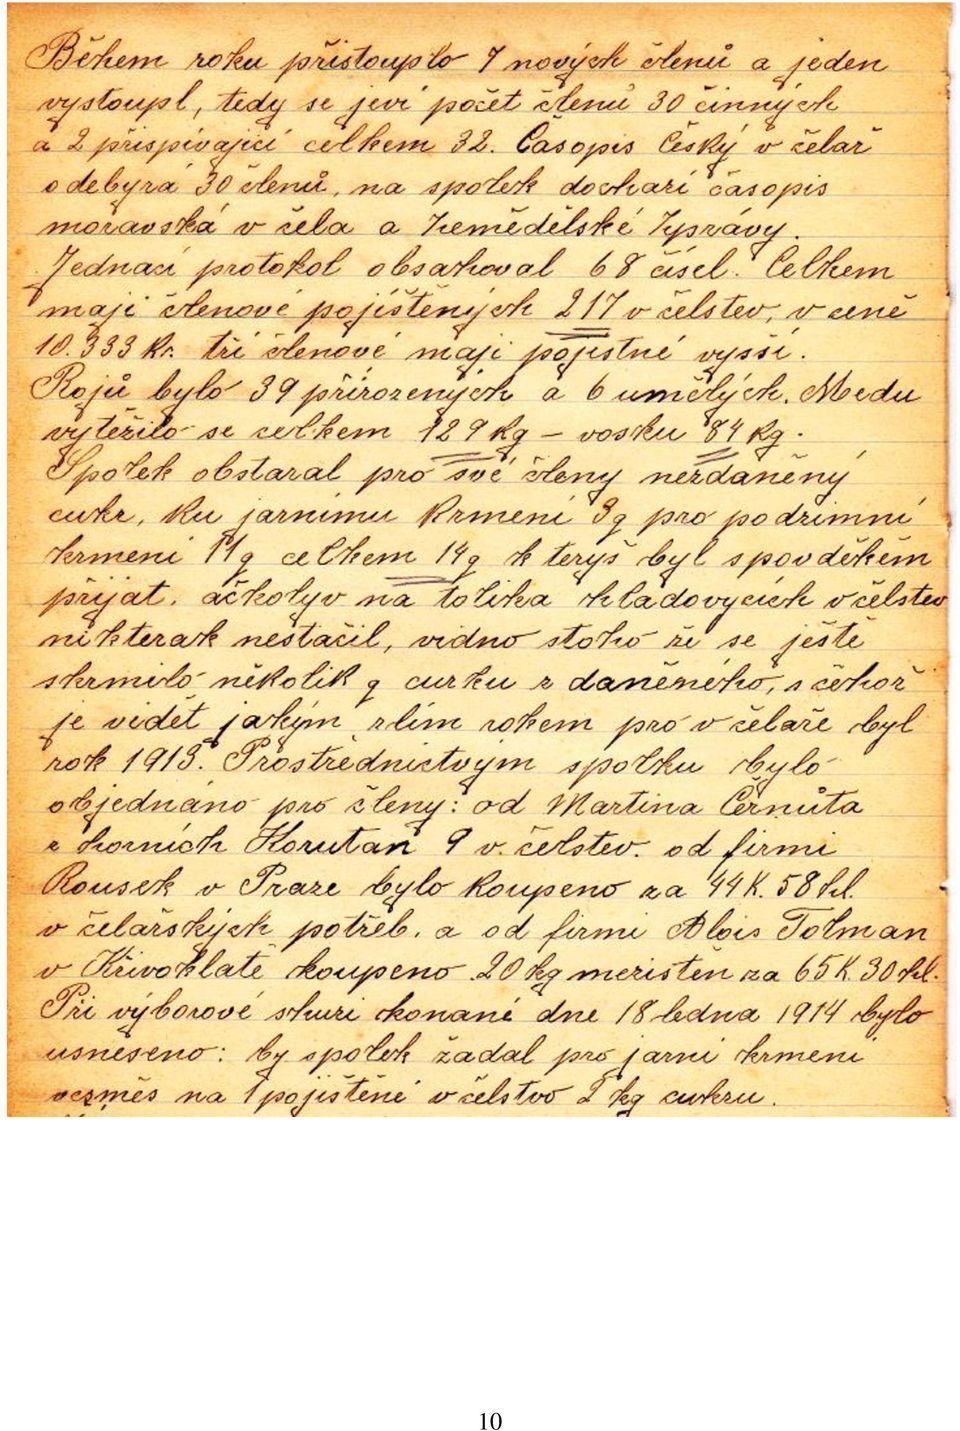 Během roku přistouplo 7 nových členů a jeden
vystoupl, tedy se jeví počet členů 30 činných
a 2 přispívající celkem 32. Časopis Český v čelař
odebyrá 30 členů, na spolek dochazí časopis
moravská v čela a Zemědělské Zprávy.
Jednací protokol obsahoval 68 čísel. Celkem
mají členové pojištěných 217 v čelstev, v ceně
10.333 Kr. tří členové mají pojistné vyšší.
Rojů bylo 39 přirozených a 6 umělých. Medu
vytěžilo se celkem 129 kg – vosku 84 kg.
Spolek obstaral pro své členy nezdaněný
cukr, ku jarnímu krmení 3q pro podzimní
krmení 11q celkem 14q kterýš byl spovděkěm
přijat. ačkolyv na tolika hladovycích včelstev
nikterak nestačil, vidno stoho že se ještě
skrmilo několik q curku zdaněného, s čehož
je vidět jakým zlím rokem pro v čelaře byl
rok 1913. Prostřednictvým spolku bylo
objednáno pro členy: od Martina Černůta
z horních Korutan 9 v. čelstev. od firmi
Rousek v Praze bylo koupeno za 44 K. 58 hl.
v čelařských potřeb. a od firmi Alois Tolman
v Křivoklatě koupeno 20 kg mezistěn za 65 K. 30 hl.
Při výborové shuzi konané dne 18 ledna 1914 bylo
usneseno: by spolek žadal pro jarní krmení
vesměs na 1 pojištěné včelstvo 2 kg cukru.
10